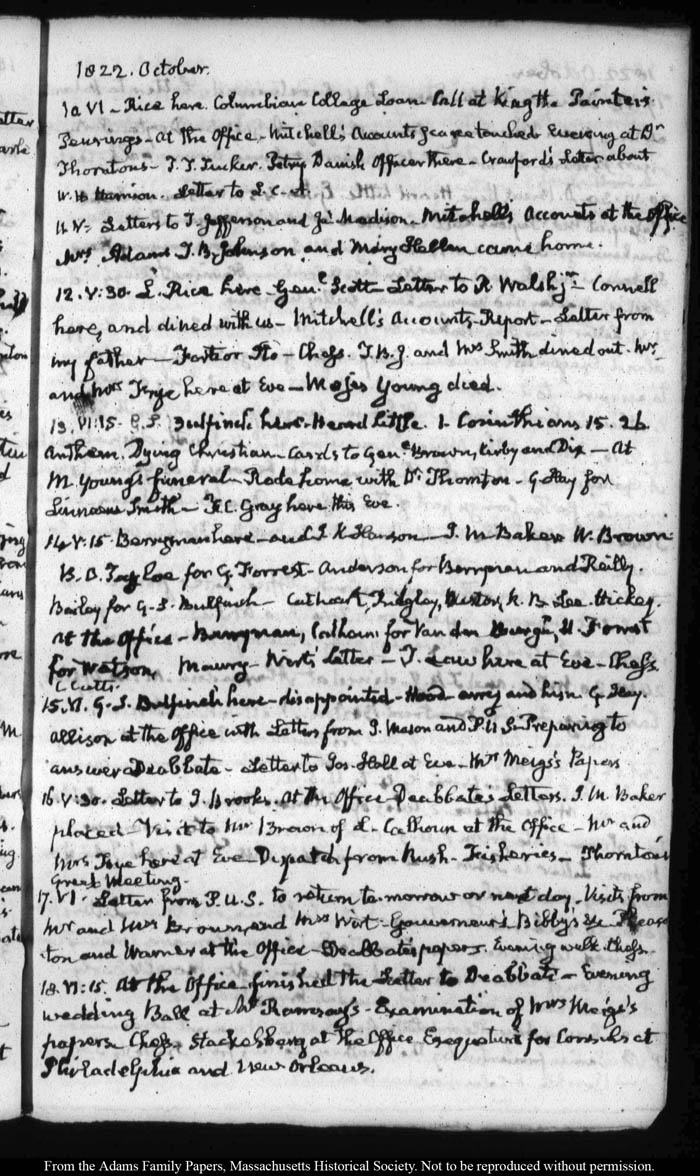 1822. October.
10. VI – Rice here. Columbian College Loan. Call at King the Painter's
at the Office – Mitchell's Accounts touched. Evening at Dr
Thornton's – T. T. Tucker. Petry Danish Officer there – Crawford's Letter about
W. H. Harrison. Letter to L. C. A.
11. V. Letters to T. Jefferson and Ja's Madison. Mitchell's Accounts at the Office
Mrs Adams T. B. Johnson and Mary Hellen came home.
12. V:30. L. Rice here – Genl Scott – Letter to R. Walsh jr – Connell
here, and dined with us – Mitchell's Accounts – Report – Letter from
my father – Chess. T. B. J. and Mrs Smith dined out. Mr
and Mrs Frye here at Eve – Moses Young died.
13. VI:15. G. S. Bulfinch here – Heard Little. 1. Corinthians 15. 26.
Anthem. Dying Christian – Cards to Genl Brown, Kirby and Dix – At
M. Young's funeral – Rode home with Dr Thornton – G Hay for
Linnaeus Smith – F. C. Gray here this Eve.
14. V:15. Berryman here – and J. K. – J. M. Baker W. Brown
B. O. Tayloe for G. Forrest – Anderson for Berryman and Reilly.
Bailey for G. S. Bulfinch – Cathcart, Ridgley, R. B. Lee. Hickey.
at the Office – Berryman, Calhoun for Van den
for Watson. Maury – Wirt's Letter – T. Law here at Eve – Chess
C. Cutts.
15. VI. G. S. Bulfinch here – disappointed – and his G Hay.
Allison at the Office with Letters from J. Mason and P. U. S. Preparing to
answer Deabbate – Letter to Jos. Hall at Eve – Mrs Meigs's Papers
16. V:30. Letter to J. Brooks. At the Office Deabbate's Letters. J. M. Baker
placed – Visit to Mr Brown of L – Calhoun at the Office – Mr and
Mrs Frye here at Eve – Dispatch from Rush – Fisheries – Thornton's
Greek Meeting.
17. VI. Letter from P. U. S. to return to-morrow or next day. Visits from
Mr and Mrs Brown, and Mrs Wirt – Gouverneur's Bibby's &c. Pleason
ton and Warner at the Office – Deabbate's papers. Evening walk. Chess
18. VI:15. At the Office finished the Letter to Deabbate – Evening
wedding Ball at Mr Ramsay's – Examination of Mrs Meigs's
papers. Chess. Stackelberg at the Office Exequaturs for Consuls at
Philadelphia and New Orleans.
From the Adams Family Papers, Massachusetts Historical Society. Not to be reproduced without permission.